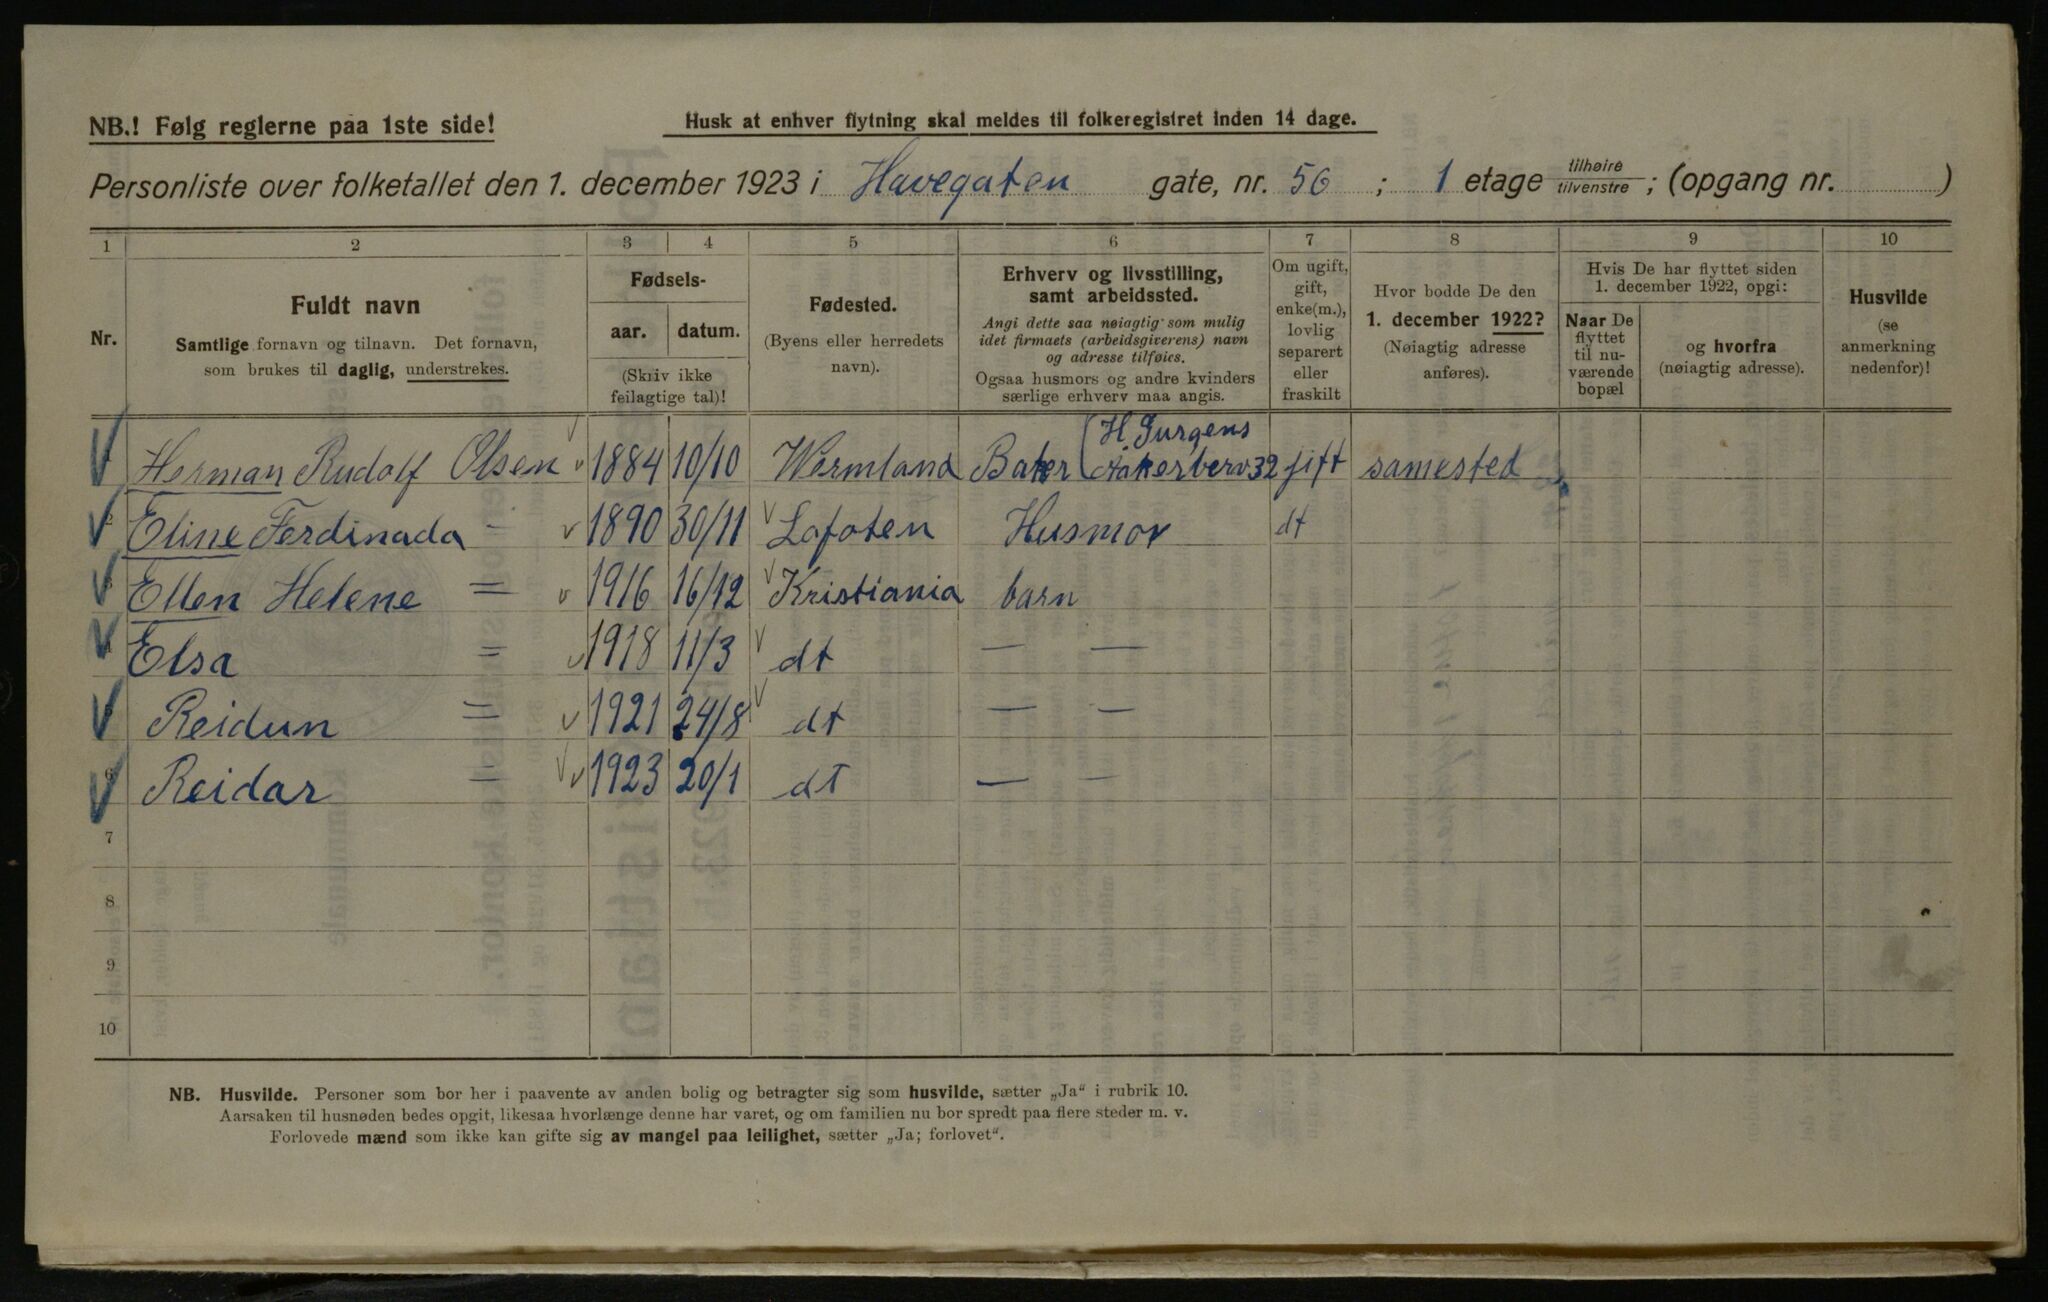 NB.! Følg reglerne paa 1ste side!
Husk at enhver flytning skal meldes til folkeregistret inden 14 dage.
Personliste over folketallet den 1. december 1923 i Havegaten gate, nr. 56 ; 1 etage tilhøire tilvenstre ; (opgang nr. )
1 2 3 4 5 6 7 8 9 10
Nr.
Fuldt navn
Samtlige fornavn og tilnavn. Det fornavn,
som brukes til daglig, understrekes.
Fødsels-
aar. datum.
(Skriv ikke
feilagtige tal)!
Fødested.
(Byens eller herredets
navn).
Erhverv og livsstilling,
samt arbeidssted.
Angi dette saa nøiagtig som mulig
idet firmaets (arbeidsgiverens) navn
og adresse tilføies.
Ogsaa husmors og andre kvinders
særlige erhverv maa angis.
Om ugift,
gift,
enke(m.),
lovlig
separert
eller
fraskilt
Hvor bodde De den
1. december 1922?
(Nøiagtig adresse
anføres).
Hvis De har flyttet siden
1. december 1922, opgi:
Naar De
flyttet
til nu-
værende
bopæl
og hvorfra
(nøiagtig adresse).
Husvilde
(se
anmerkning
nedenfor)!
Herman Rudolf Olsen 1884 10/10 Wermland Baker (H. Jurgens Aakerberv 32 gift samested
2 Eline Ferdinada - 1890 30/11 Lofoten Husmor dt
3 Ellen Helene = 1916 16/12 Kristiania barn
4 Elsa = 1918 11/3 dt — —
Reidun = 1921 24/8 dt — —
6 Reidar = 1923 20/1 dt — —
7
8
9
10
NB. Husvilde. Personer som bor her i paavente av anden bolig og betragter sig som husvilde, sætter „Ja" i rubrik 10.
Aarsaken til husnøden bedes opgit, likesaa hvorlænge denne har varet, og om familien nu bor spredt paa flere steder m. v.
Forlovede mænd som ikke kan gifte sig av mangel paa leilighet, sætter „Ja; forlovet".